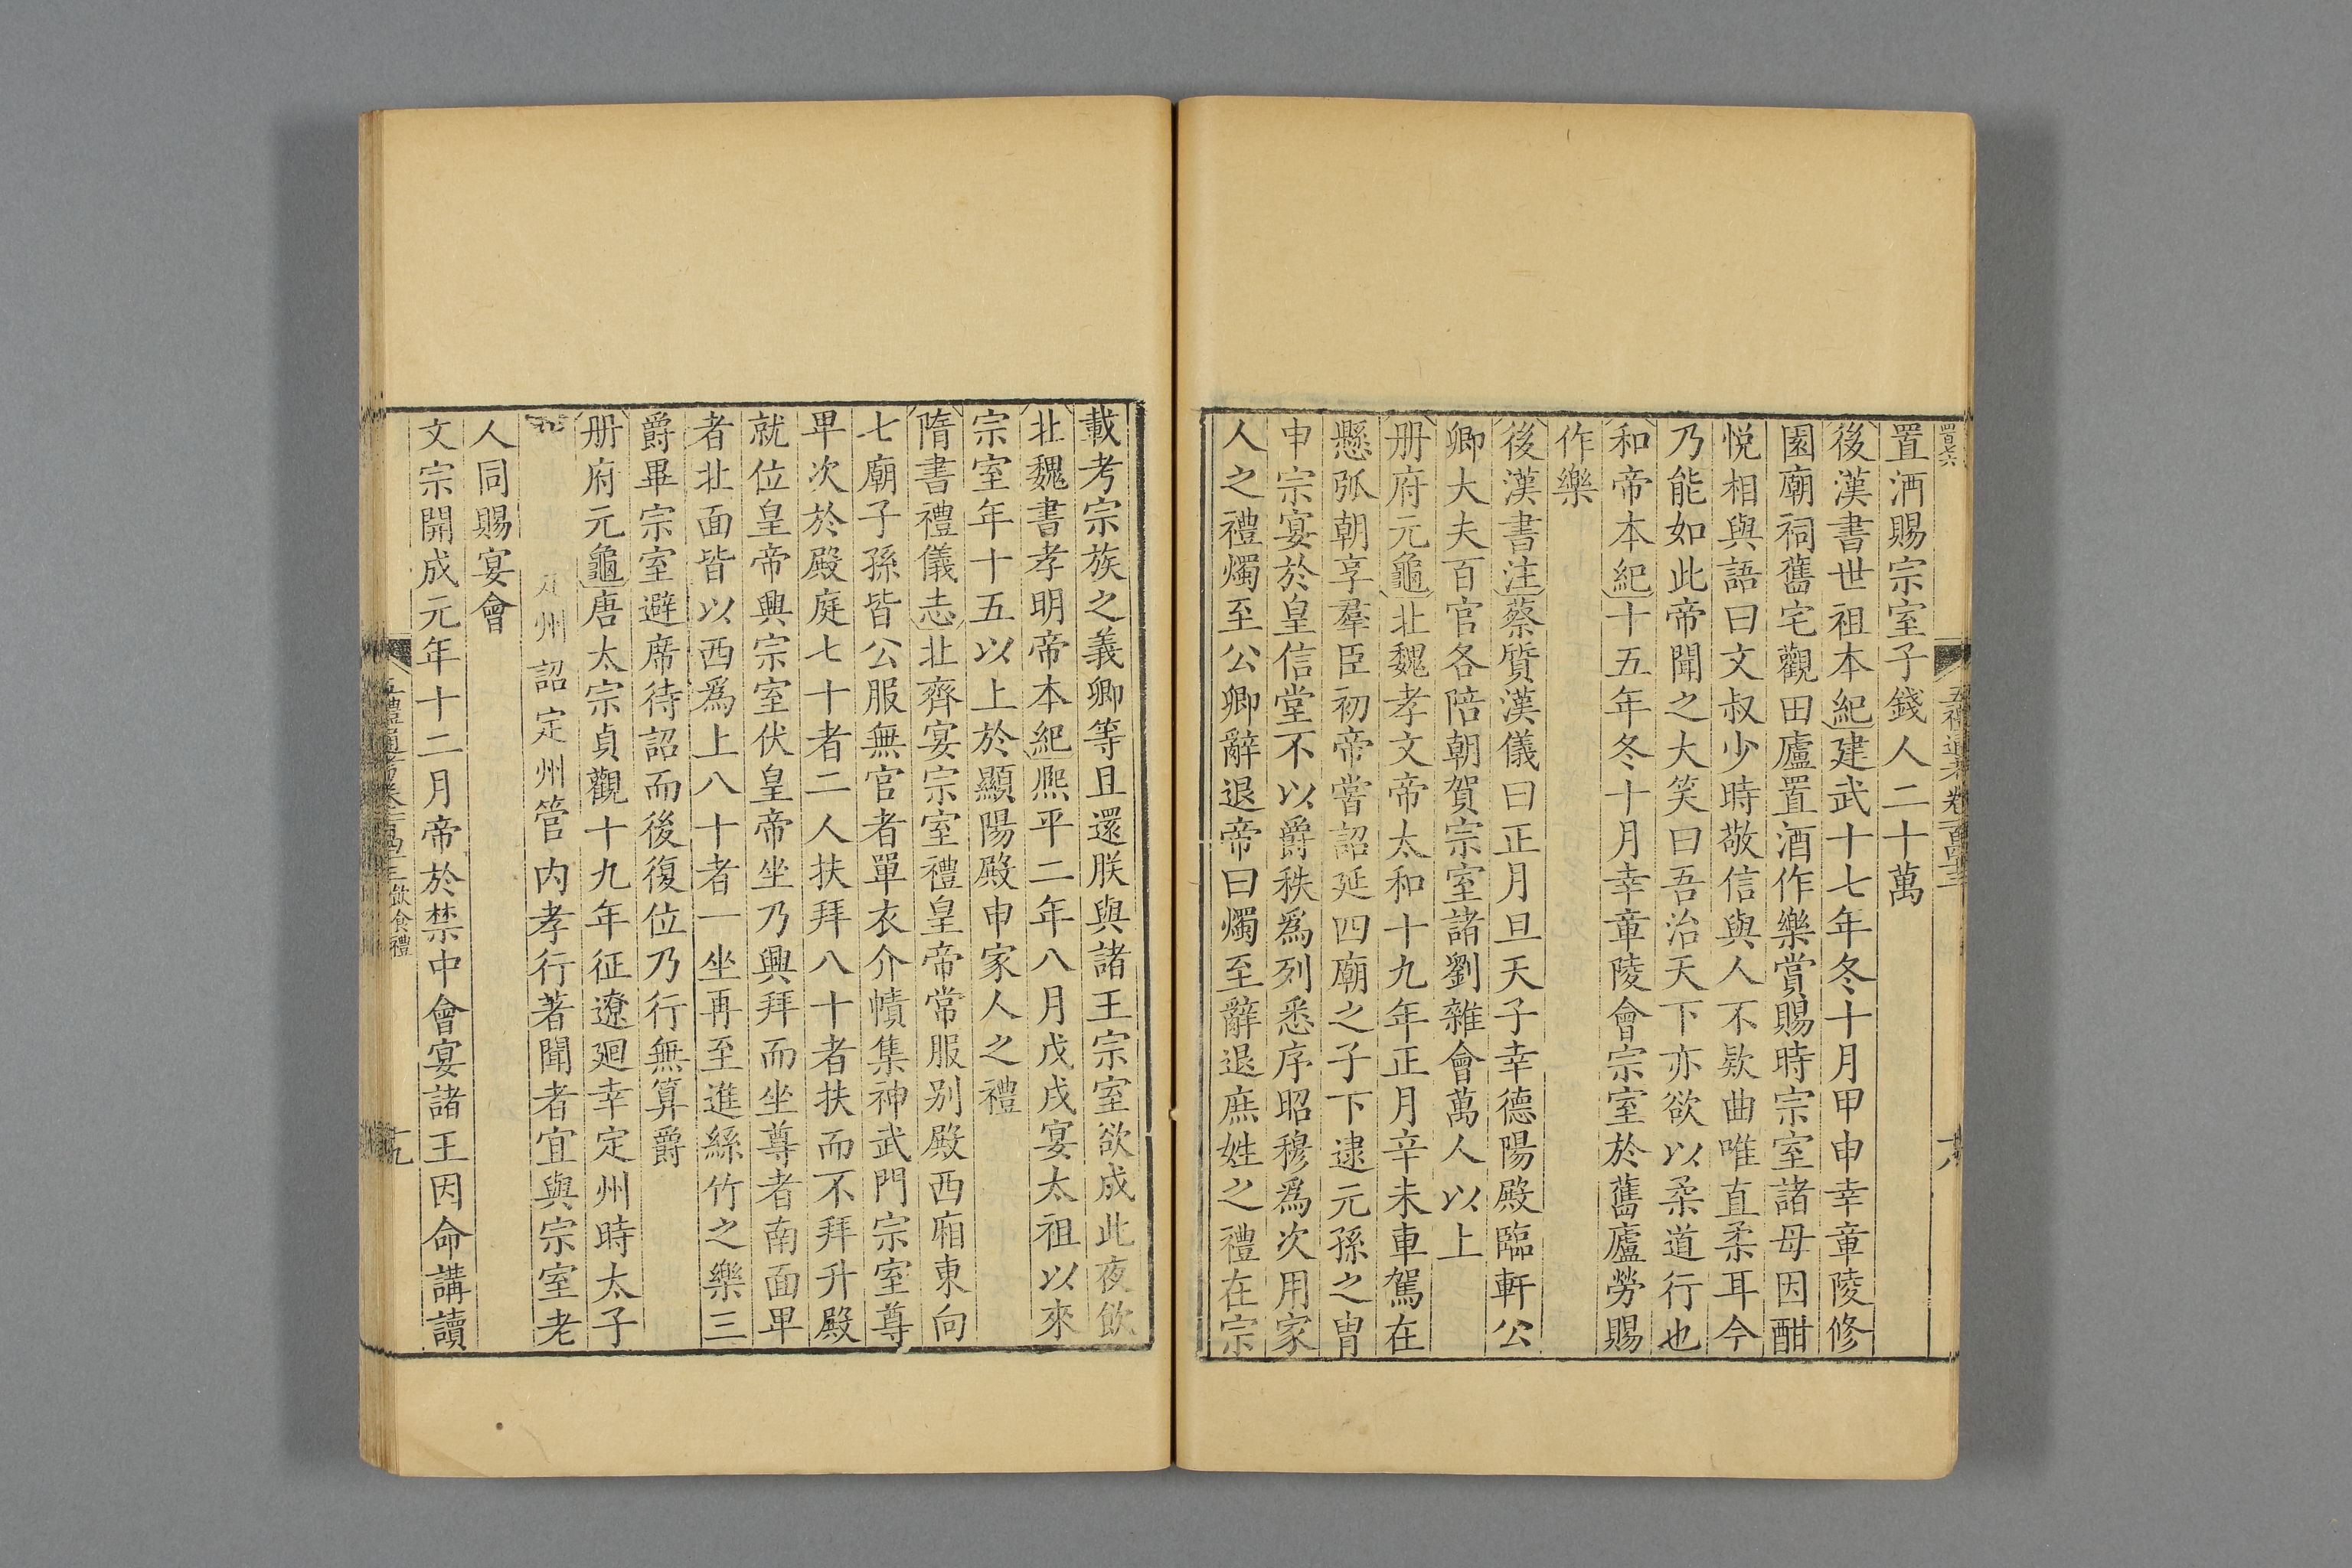 置酒賜宗室子錢人二十萬
後漢書世祖本紀建武十七年冬十月甲申幸章陵修
園廟祠舊宅觀田廬置酒作樂賞賜時宗室諸母因酣
悅相與語曰文叔少時敬信與人不款曲唯直柔耳今
乃能如此帝聞之大笑曰吾治天下亦欲以柔道行也
和帝本紀十五年冬十月幸章陵會宗室於舊廬勞賜
作樂
後漢書注蔡質漢儀曰正月旦天子幸德陽殿臨軒公
卿大夫百官各陪朝賀宗室諸劉雜會萬人以上
册府元龜北魏孝文帝太和十九年正月辛未車駕在
懸弧朝享羣臣初帝嘗詔延四廟之子下逮元孫之胄
申宗宴於皇信堂不以爵秩爲列悉序昭穆爲次用家
人之禮燭至公卿辭退帝曰燭至辭退庶姓之禮在宗
載考宗族之義卿等且還朕與諸王宗室欲成此夜飲
北魏書孝明帝本紀熈平二年八月戊戌宴太祖以來
宗室年十五以上於顯陽殿申家人之禮
隋書禮儀志北齊宴宗室禮皇帝常服别殿西廂東向
七廟子孫皆公服無官者單衣介幘集神武門宗室尊
卑次於殿庭七十者二人扶拜八十者扶而不拜升殿
就位皇帝興宗室伏皇帝坐乃興拜而坐尊者南面卑
者北面皆以西爲上八十者一坐再至進絲竹之樂三
爵畢宗室避席待詔而後復位乃行無算爵
册府元龜唐太宗貞觀十九年征遼廻幸定州時太子
州詔定州管内孝行著聞者宜與宗室老
人同賜宴會
文宗開成元年十二月帝於禁中會宴諸王因命講讀
五禮通考卷一百四十三 飲食禮